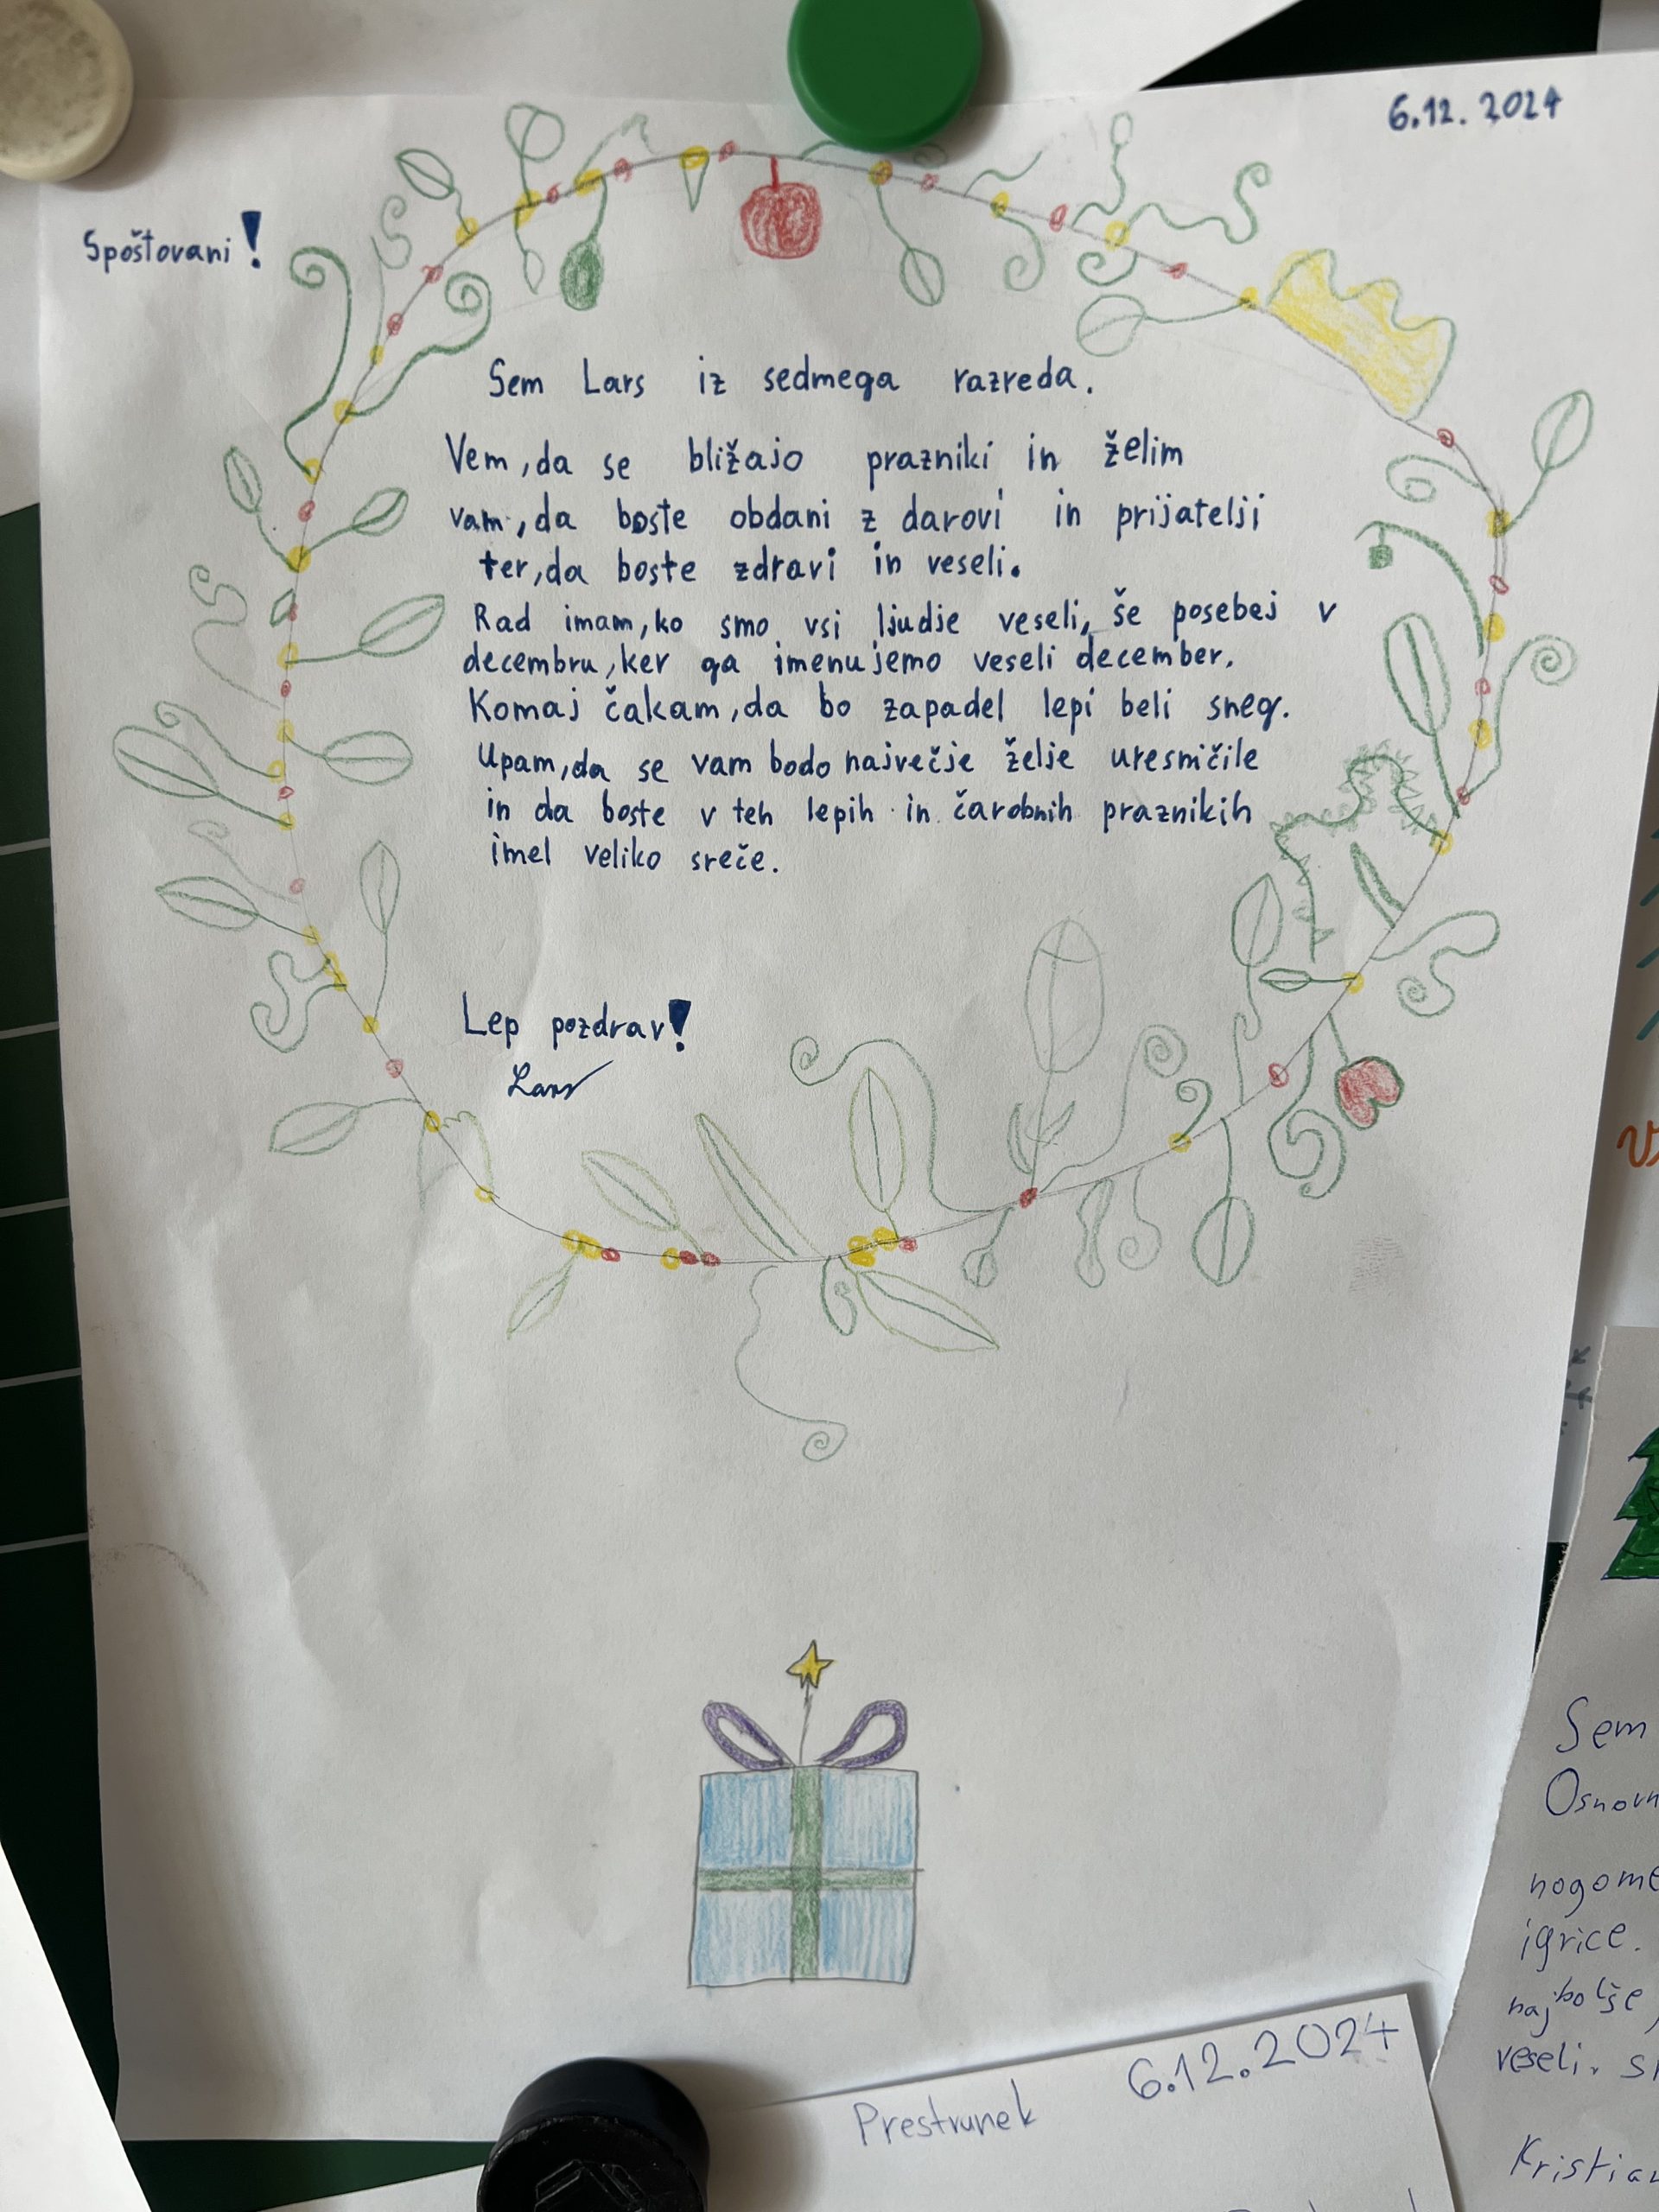 6.12. 2024
Spoštovani!
Sem Lars iz sedmega razreda.
Vem, da se bližajo prazniki in želim
vam, da boste obdani z darovi in prijatelji
ter, da boste zdravi in veseli.
Rad imam, ko smo vsi ljudje veseli, še posebej v
decembru, ker ga imenujemo veseli december.
Komaj čakam, da bo zapadel lepi beli sneg.
Upam, da se vam bodo največje želje uresničile
in da boste v teh lepih in čarobnih praznikih
imel veliko sreče.
Lep pozdrav!
Lars
Sem
nogome
igrice.
najbolše,
veseli.
6.12.2024
Prestrunek